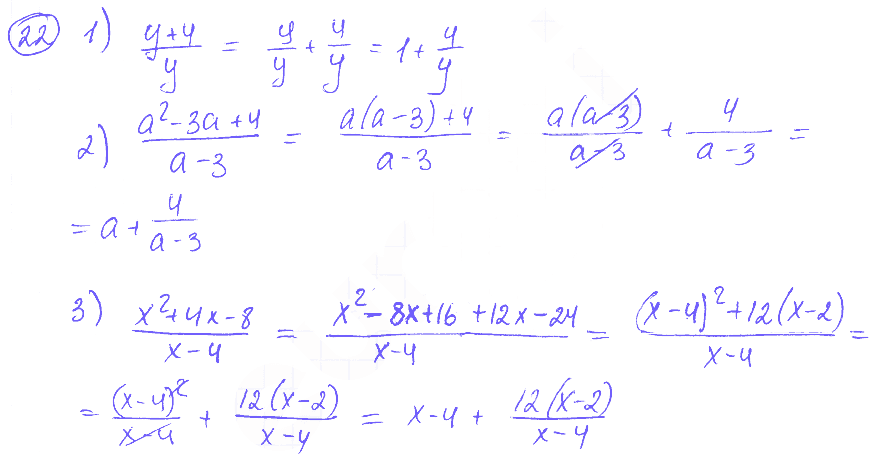 22 1) (y+4)/y = y/y + 4/y = 1 + 4/y
2) (a²-3a+4)/(a-3) = (a(a-3)+4)/(a-3) = a(a-3)/(a-3) + 4/(a-3) =
= a + 4/(a-3)
3) (x²+4x-8)/(x-4) = (x²-8x+16+12x-24)/(x-4) = ((x-4)²+12(x-2))/(x-4) =
= (x-4)²/(x-4) + 12(x-2)/(x-4) = x-4 + 12(x-2)/(x-4)